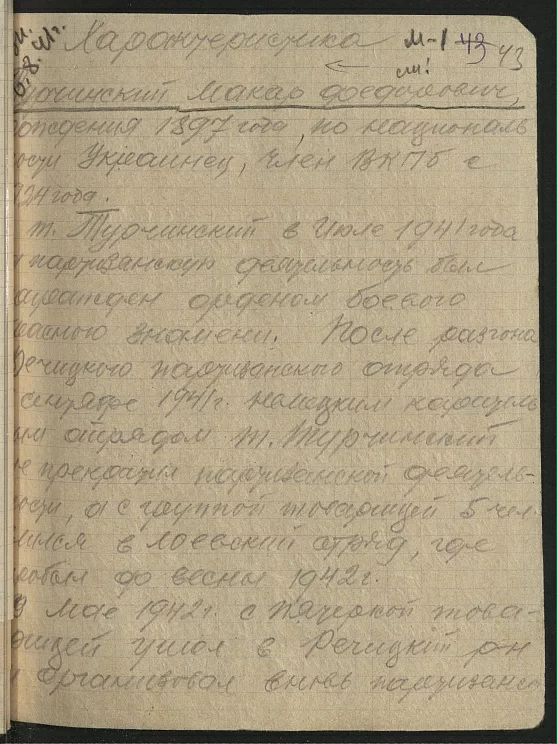 Характеристика
М-1 43 43
см!
Турчинский Макар Федорович,
рождения 1897 года, по националь
ности Украинец, член ВКПб с
1924 года.
т. Турчинский в Июле 1941 года
партизанскую деятельность был
награжден орденом боевого
красного знамени. После разгона
Речицкого партизанского отряда
сентябре 1941 г. немецким каратель
ным отрядом т. Турчинский
не прекратил партизанской деятель-
ности, а с группой товарищей 5 чел.
влился в Лоевский отряд, где
пробыл до весны 1942 г.
В Мае 1942 г. с пятеркой това-
рищей ушол в Речицкий р-н
и Организовал вновь партизанс